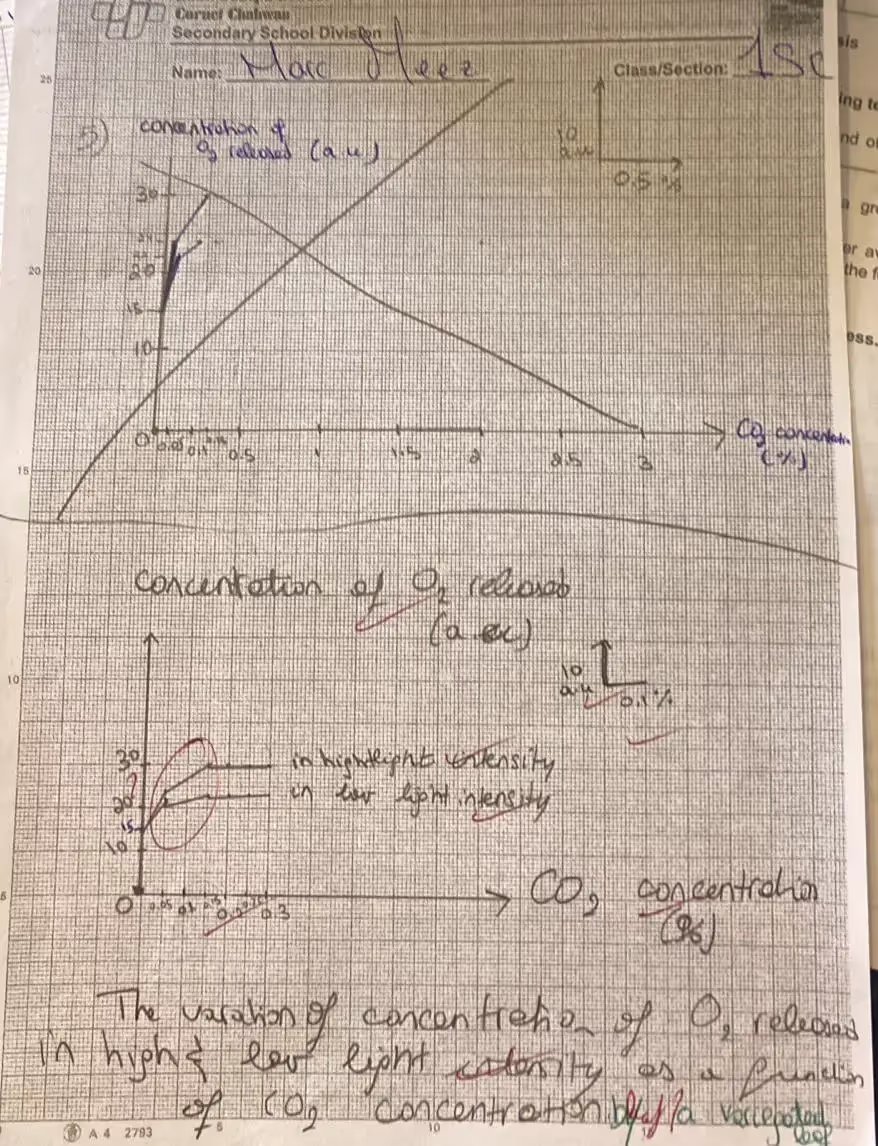 Carmel Chahwan
Secondary School Division
Name: Marc Class/Section: 1Sc
25
sis
ing te
nd of
5) concentration of
O2 released (a.u)
10
a.u
0.5 %
a gr
er av
the f
30
20
20
15
10
ess.
0 0.05 0.1 0.5 1 1.5 2 2.5 3
CO2 concentratio
(%)
15
concentration of O2 released
(a.u)
10
10
a.u
0.1%
30
in high light intensity
20
in low light intensity
15
10
5
0 0.05 0.1 0.3
CO2 concentration
(%)
The variation of concentration of O2 released
in high & low light intensity as a function
of CO2 concentration by of a variegated
leaf
A 4 2793
5
10